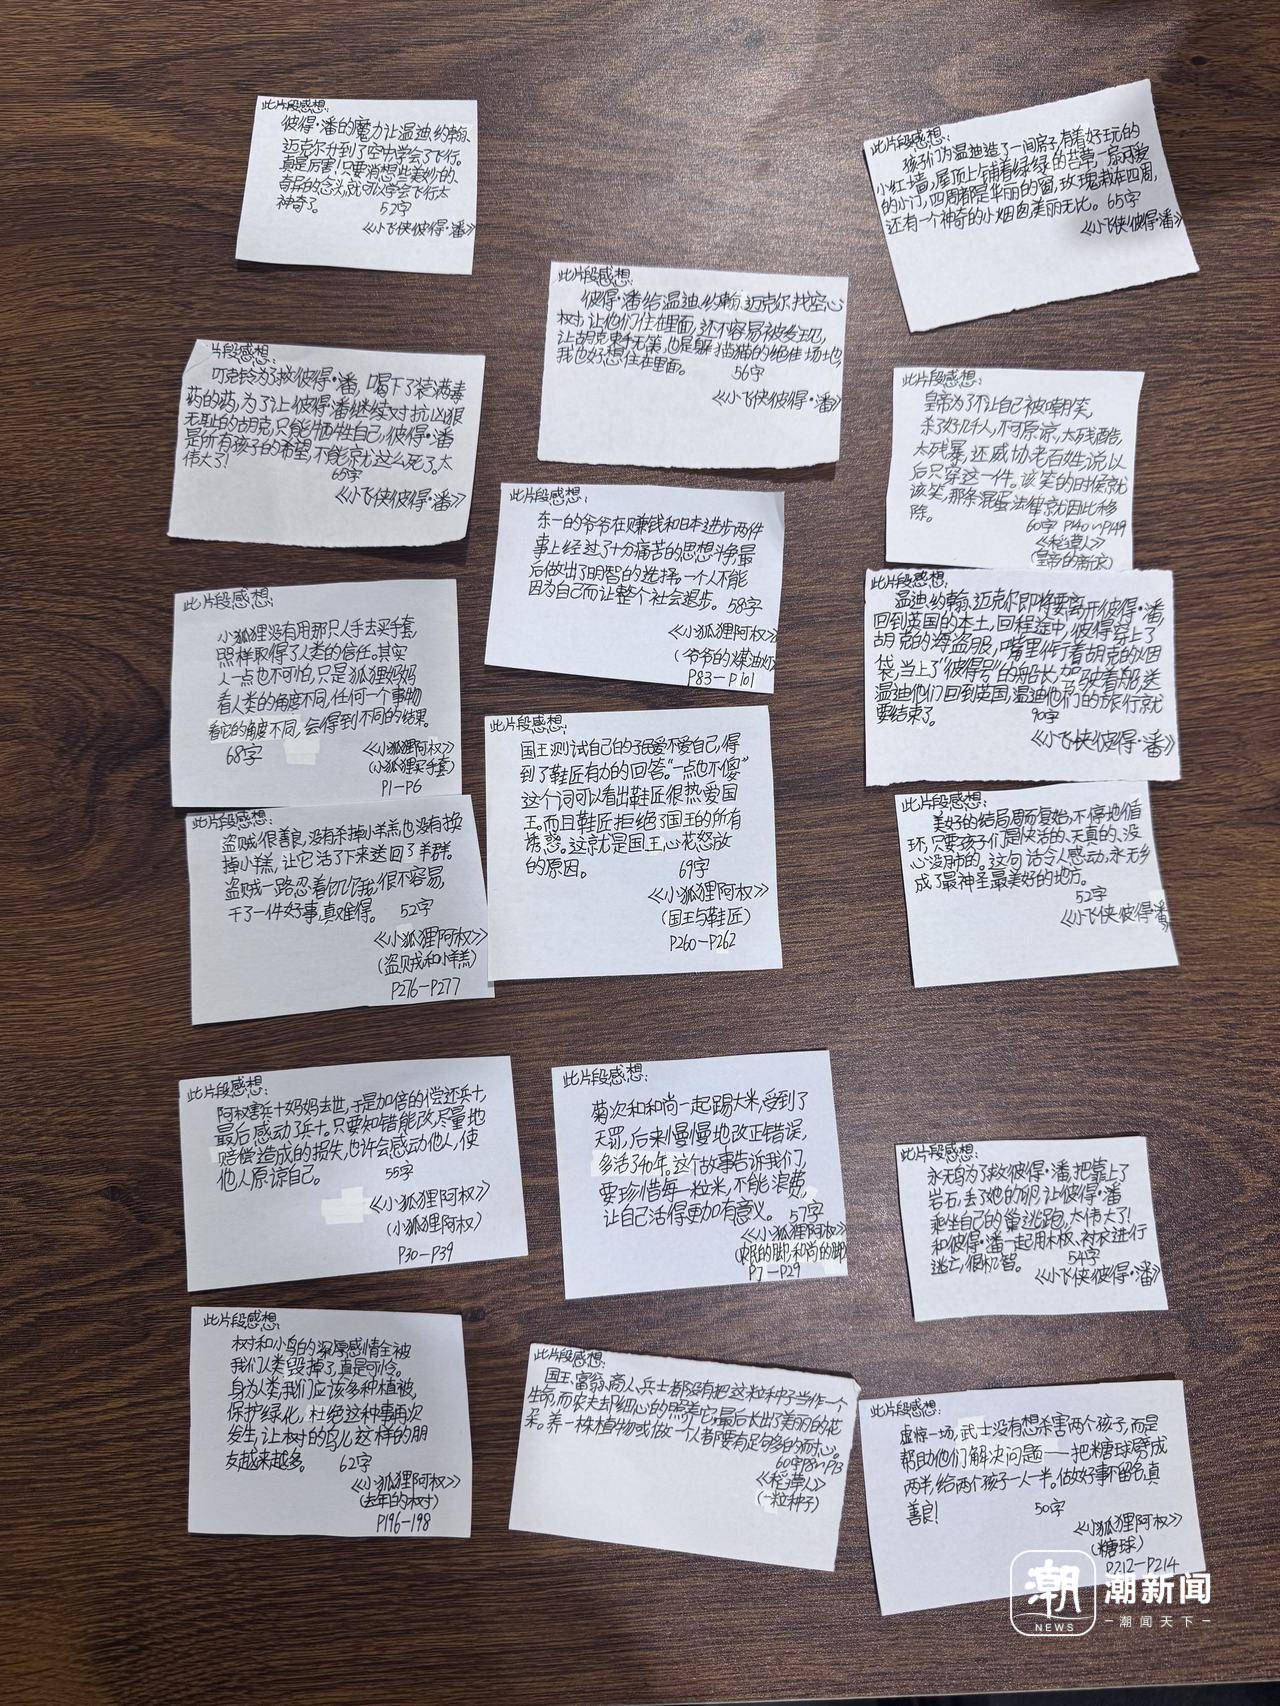 此片段感想:
彼得·潘的魔力让温迪、约翰、
迈克尔升到了空中学会了飞行。
真是厉害!只要肖想些美妙的、
奇异的念头,就可以学会飞行太
神奇了。 52字
《小飞侠彼得·潘》
此片段感想:
孩子们为温迪造了一间房子,有着好玩的
小红墙,屋顶上铺着绿绿的苔草一扇可爱
的小门,四周都是华丽的窗,玫瑰栽在四周,
还有一个神奇的小烟囱美丽无比。65字
《小飞侠彼得·潘》
此片段感想:
彼得·潘给温迪、约翰、迈克尔找空心
树,让他们住在里面,还不容易被发现,
让胡克束手无策,也是躲猫猫的绝佳场地,
我也好想住在里面。 56字
《小飞侠彼得·潘》
此片段感想:
叮克铃为了救彼得·潘,喝下了装满毒
药的药,为了让彼得·潘继续对抗凶狠
无耻的胡克,只能牺牲自己,彼得·潘
是所有孩子的希望,不能就这么死了。太
伟大了!
65字
《小飞侠彼得·潘》
此片段感想:
皇帝为了不让自己被嘲笑,
杀了好几千人,不可原谅,太残酷,
太残暴,还威协老百姓,说以
后只穿这一件。该笑的时候就
该笑,那条混蛋法律就因此移
除。
60字 P140~P149
《稻草人》
(皇帝的新衣)
此片段感想:
东一的爷爷在赚钱和日本进步两件
事上经过了十分痛苦的思想斗争,最
后做出了明智的选择。一个人不能
因为自己而让整个社会退步。58字
《小狐狸阿权》
(爷爷的煤油灯)
P83-P101
此片段感想:
温迪、约翰、迈克尔即将要离开彼得·潘
回到英国的本土,回程途中,彼得穿上了
胡克的海盗服,嘴里作着胡克的烟
袋,当上了"彼得号"的船长,驾驶着船送
温迪他们回到英国,温迪他们的旅行就
要结束了。 90字
《小飞侠彼得·潘》
此片段感想:
小狐狸没有用那只人手去买手套,
照样取得了人类的信任。其实
人一点也不可怕,只是狐狸妈妈
看人类的角度不同,任何一个事物
看它的角度不同,会得到不同的结果。
68字 《小狐狸阿权》
(小狐狸买手套)
P1-P6
此片段感想:
国王测试自己的子民爱不爱自己,得
到了鞋匠有力的回答。"一点也不傻"
这个词可以看出鞋匠很热爱国
王。而且鞋匠拒绝了国王的所有
诱惑。这就是国王心花怒放
的原因。 69字
《小狐狸阿权》
(国王与鞋匠)
P260-P262
此片段感想:
美好的结局周而复始,不停地循
环,只要孩子们是快活的、天真的、没
心没肺的。这句话令人感动,永无乡
成了最神圣最美好的地方。
52字
《小飞侠彼得·潘
此片段感想:
盗贼很善良,没有杀掉小羊羔,也没有换
掉小羊羔,让它活了下来送回了羊群。
盗贼一路忍着饥饿,很不容易,
干了一件好事,真难得。 52字
《小狐狸阿权》
(盗贼和小羊羔)
P276-P277
此片段感想:
阿权害兵十妈妈去世,于是加倍的偿还兵十,
最后感动了兵十。只要知错能改,尽量地
赔偿造成的损失,也许会感动他人,使
他人原谅自己。 55字
《小狐狸阿权》
(小狐狸阿权)
P30-P39
此片段感想:
菊次和和尚一起踢大米,受到了
天罚,后来慢慢地改正错误,
多活了40年。这个故事告诉我们
要珍惜每一粒米,不能浪费。
让自己活得更加有意义。 57字
《小狐狸阿权》
的脚,和尚的脚)
P7-P29
此片段感想:
永无鸟为了救彼得·潘,把靠上了
岩石,丢了她的卵,让彼得·潘
乘坐自己的巢逃跑,太伟大了!
和彼得·潘一起用木板、衬衣进行
逃亡,很机智。 54字
《小飞侠彼得·潘》
此片段感想:
树和小鸟的深厚感情全被
我们人类毁掉了,真是可怜。
身为人类,我们应该多种植被,
保护绿化,杜绝这种事再次
发生,让树的鸟儿这样的朋
友越来越多。 62字
《小狐狸阿权》
(去年的树)
P196-198
此片段感想:
国王、富翁、商人、兵士都没有把这粒种子当作一个
生命,而农夫却细心的照养它,最后长出了美丽的花
朵。养一株植物或做一个人都要有足够多的耐心。
60字P8~P13
《稻草人》
(一粒种子)
此片段感想:
虚惊一场,武士没有想杀害两个孩子,而是
帮助他们解决问题——把糖球劈成
两半,给两个孩子一人一半。做好事不留名,真
善良! 50字
《小狐狸阿权》
(糖球)
P212-P214
潮
NEWS
潮新闻
潮闻天下